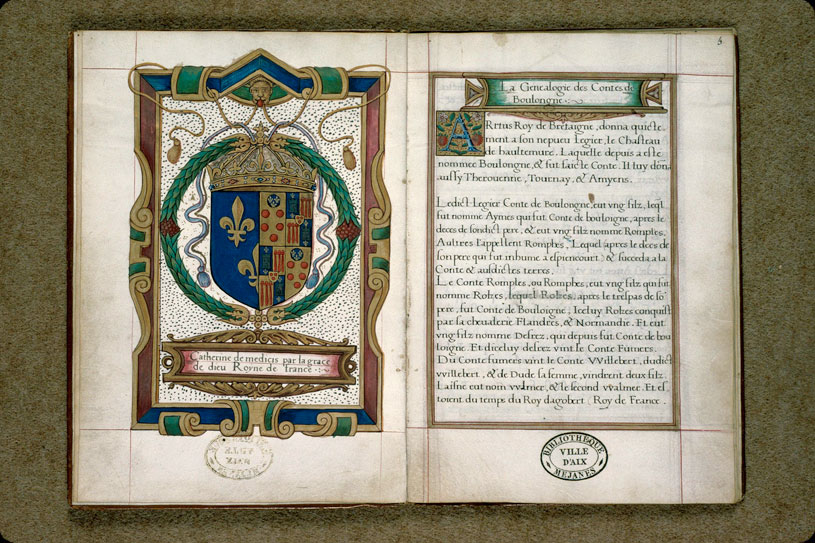 Catherine de medicis par la grace
de dieu Royne de france
5
La Genealogie des Contes de
Boulongne
ARrtus Roy de Bretaigne, donna quicte
ment a son nepueu Legier, le Chasteau
de haultemure. Laquelle depuis a este
nommee Boulongne, & fut faict le Conte. Il luy don
aussy Therouenne, Tournay, & Amyens.
Ledict Legier Conte de Boulongne, eut vng filz, leql
fut nomme Aymes qui fut Conte de bouloigne, apres le
deces de sondict pere, & eut vng filz nomme Romples,
Aultres l'appellent Romphes. Lequel apres le deces de
son pere qui fut inhume a espiencourt) & succeda a la
Conte & ausdictes terres.
Le Conte Romples, ou Romphes, eut vng filz qui fut
nomme Rotzes, lequel Rotzes, apres le trespas de so
pere, fut Conte de Bouloigne, Iceluy Rotzes conquist
par sa cheualerie Flandres, & Normandie. Et eut
vng filz nomme Desrez, qui depuis fut Conte de bou
loigne. Et diceluy desrez vint le Conte Fumers.
Du Conte fumers vint le Conte VVillebert, dudict
vvillebert, & de Dude sa femme, vindrent deux filz.
Laisne eut nom vvlmer, & le second vvalmer. Et es
toient du temps du Roy dagobert Roy de France.
BIBLIOTHEQUE
VILLE
D'AIX
MEJANES